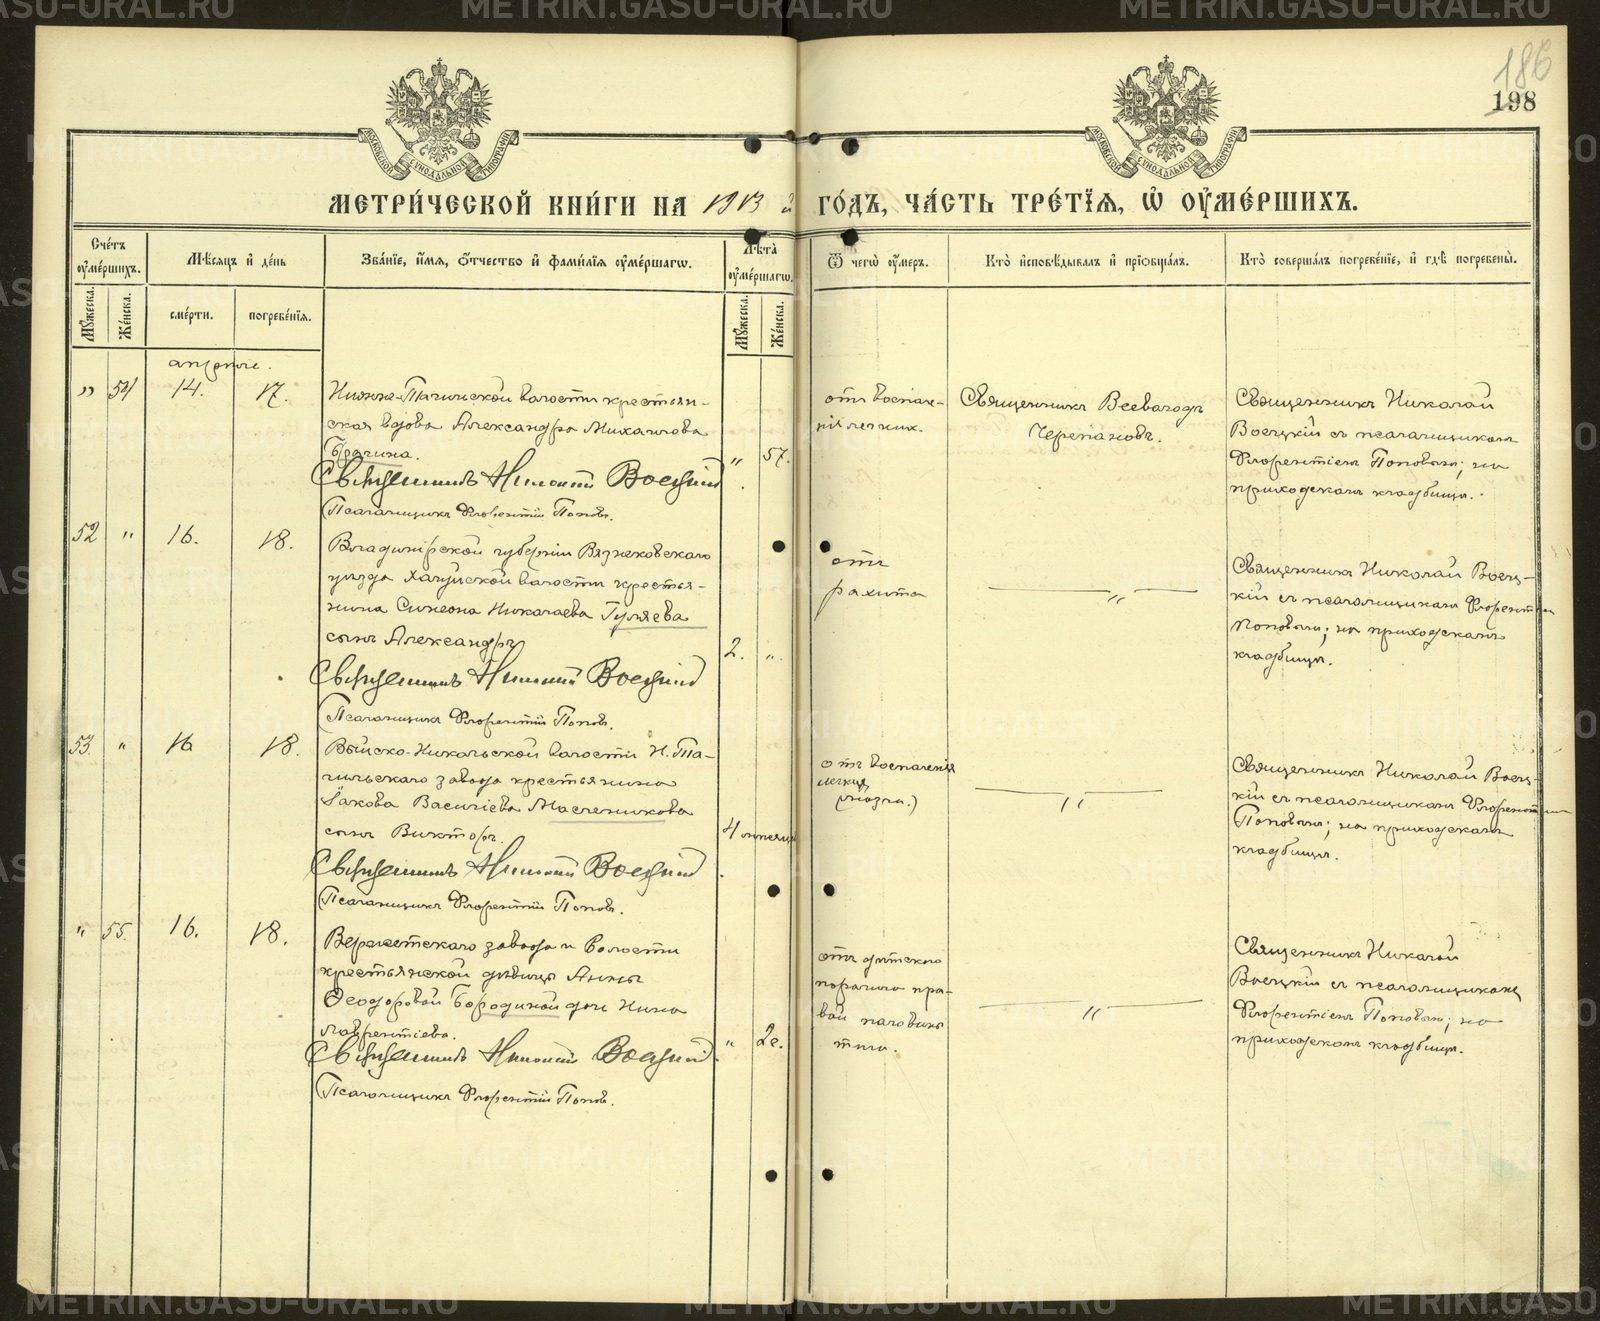 186
198
МОСКОВСКОЙ СѴНОДАЛЬНОЙ ТИПОГРАФІИ
МОСКОВСКОЙ СѴНОДАЛЬНОЙ ТИПОГРАФІИ
МЕТРИ́ЧЕСКОЙ КНИ́ГИ НА 1913 й ГО́ДЪ, ЧА́СТЬ ТРЕ́ТЇѦ, Ѡ҆ ОУ҆МЕ́РШИХЪ.
Сче́тъ оу҆ме́ршихъ.
Мꙋ́жеска.
Же́нска.
Мѣ́сяцъ и҆ де́нь
сме́рти.
погребе́нїѧ.
Зва́нїе, и҆́мѧ, ѻ҆́тчество и҆ фами́лїѧ оу҆ме́ршагѡ.
Лѣ́та оу҆ме́ршагѡ.
Мꙋ́жеска.
Же́нска.
Ѿ чегѡ̀ оу҆́меръ.
Кто̀ и҆сповѣ́дывалъ и҆ прїѡбща́лъ.
Кто̀ соверша́лъ погребе́нїе, и҆ гдѣ̀ погребены̀.
апрѣль.
" 54 14. 17.
Нижне-Тагильской волости крестьян-
ская вдова Александра Михаилова
Брагина.
" 57.
Священникъ Николай Воецкій
Псаломщикъ Флорентій Поповъ.
отъ воспале-
нія легкихъ.
Священникъ Всеволодъ
Черепановъ.
Священникъ Николай
Воецкій съ псаломщикомъ
Флорентіемъ Поповымъ; на
приходскомъ кладбищѣ.
52 " 16. 18.
Владимірской губерніи Вязнековскаго
уѣзда Холуйской волости крестья-
нина Симеона Николаева Гуляева
сынъ Александръ
2. "
Священникъ Николай Воецкій
Псаломщикъ Флорентій Поповъ.
отъ
рахита
"
Священникъ Николай Воец-
кій съ псаломщикомъ Флорентіем
Поповымъ; на приходскомъ
кладбищѣ.
53. " 16 18.
Выйско-Никольской волости Н.Та-
гильскаго завода крестьянина
Іакова Василіева Масленикова
сынъ Викторъ.
4 мѣсяца
Священникъ Николай Воецкій
Псаломщикъ Флорентій Поповъ.
отъ воспаленія
легких
(мозга.)
"
Священникъ Николай Воец-
кій съ псаломщикомъ Флорентіем
Поповымъ; на приходскомъ
кладбищѣ.
" 55. 16. 18.
завода и волости
крестьянской дѣвицы Анны
Ѳеодоровой Бородиной дочь Нина
Лаврентіева.
" 2г.
Священникъ Николай Воецкій
Псаломщикъ Флорентій Поповъ.
отъ дѣтскаго
паралича пра-
вой половины
тѣла.
"
Священникъ Николай
Воецкій съ псаломщикомъ
Флорентіемъ Поповымъ; на
приходскомъ кладбищѣ.
METRIKI.GASU-URAL.RU